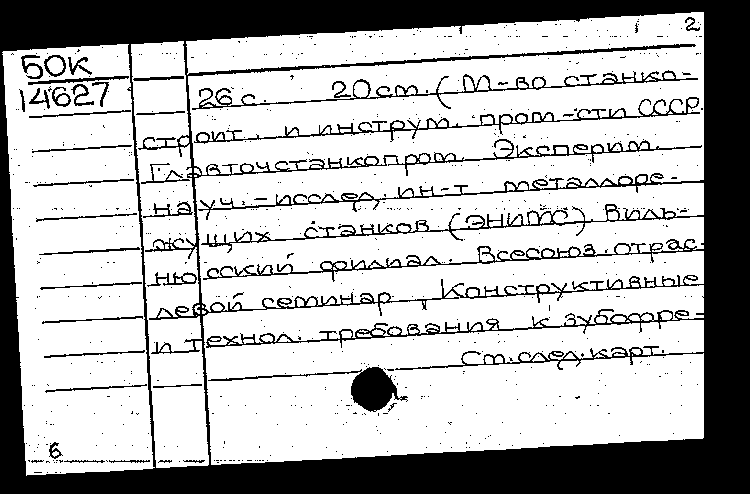 2
50К
14627
26 с. 20 см. (М-во станко-
строит. и инструм. пром-сти СССР.
Главточстанкопром. Эксперим.
науч.-исслед. ин-т металлоре-
жущих станков (ЭНИМС). Виль-
нюсский филиал. Всесоюз. отрас-
левой семинар „Конструктивные
и технол. требования к зубофре-
См. след. карт.
6